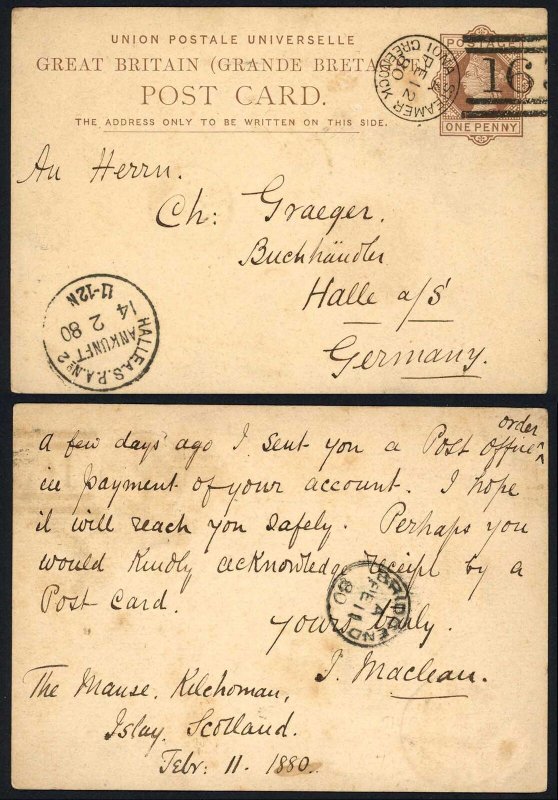 UNION POSTALE UNIVERSELLE
GREAT BRITAIN (GRANDE BRETA
POST CARD.
THE ADDRESS ONLY TO BE WRITTEN ON THIS SIDE.
POSTAGE
ONE PENNY
163
STEAMER GREENOCK
FE 12
80
An Herrn.
Ch: Graeger.
Buchhändler
Halle a/S
Germany.
HALLE A.S. P.A. No 2
ANKUNFT
14 2 80
11-12N
a few days ago I sent you a Post Office order
in payment of your account. I hope
it will reach you safely. Perhaps you
would kindly acknowledge receipt by a
Post Card.
yours truly.
J. Maclean.
BRIDGEND
A
FE 11
80
The Manse, Kilchoman,
Islay, Scotland.
Febr: 11. 1880.